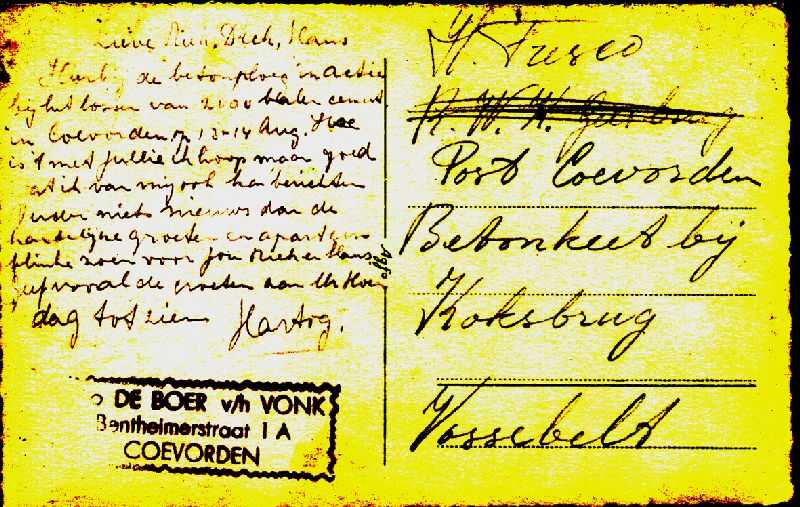 Lieve Riek, Dick, Hans
Hierbij de betonploeg in actie
bij het lossen van 2100 balen cement
in Coevorden op 13-14 Aug. Hoe
is 't met jullie ik hoop maar goed
at ik van mij ook kan berichten
Verder niets nieuws dan de
hartelijke groeten en apart een
flinke zoen voor jou Riek en Hans
geef vooral de groeten aan
dag tot ziens Hartog.
Agfa
DE BOER v/h VONK
Bentheimerstraat 1 A
COEVORDEN
H. Fresco
Post Coevorden
Betonkeet bij
Koksbrug
Vossebelt